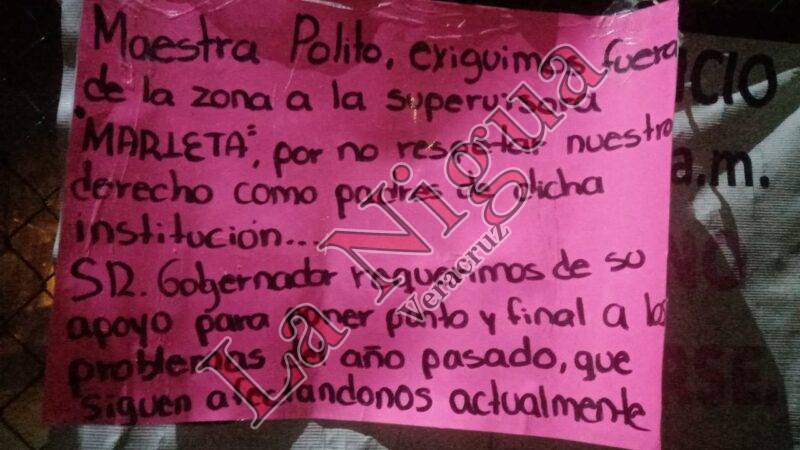 Maestra Polito, exiguimos fuera
de la zona a la supervisora
"MARIETA", por no respetar nuestro
derecho como padres de dicha
institución...
SR. Gobernador requerimos de su
apoyo para poner punto y final a los
problemas del año pasado, que
siguen afectandonos actualmente
La Nigua
Veracruz
CIO
a.m.
NO
RSE.